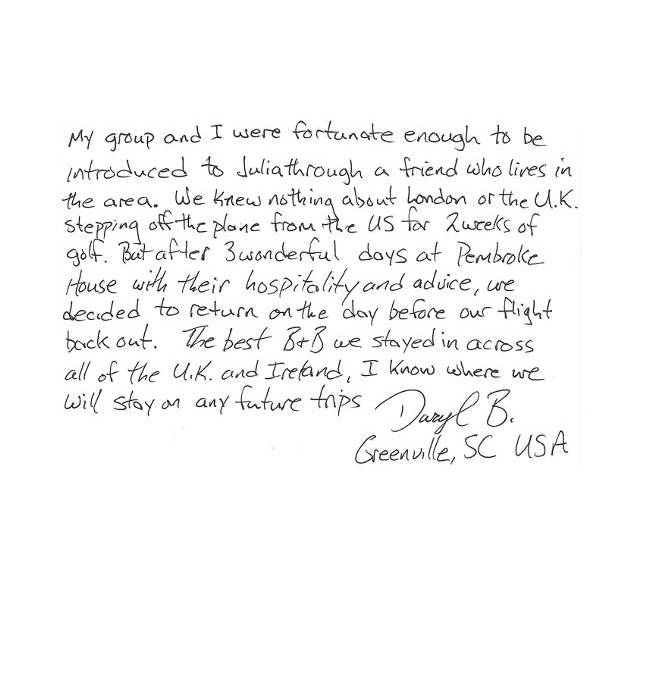 My group and I were fortunate enough to be
introduced to Julia through a friend who lives in
the area. We knew nothing about London or the U.K.
stepping off the plane from the US for 2 weeks of
golf. But after 3 wonderful days at Pembroke
House with their hospitality and advice, we
decided to return on the day before our flight
back out. The best B+B we stayed in across
all of the U.K. and Ireland, I know where we
will stay on any future trips
Daryl B.
Greenville, SC USA